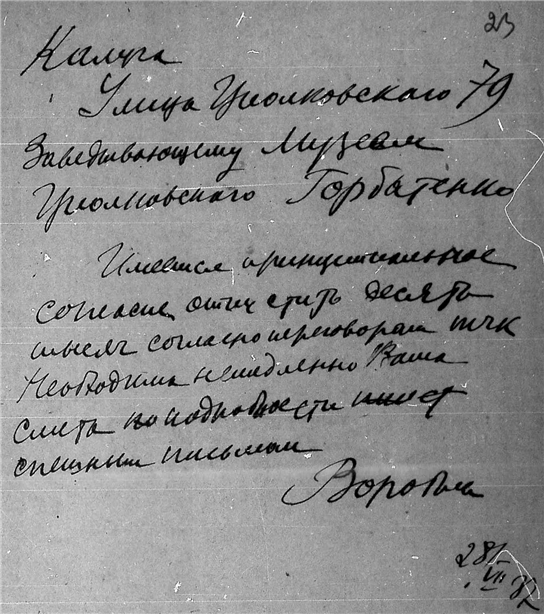 23
Калуга
Улица Циолковского 79
Заведывающему Музеем
Циолковского Горбатенко
Имеется принципиальное
согласие отпустить десять
тысяч согласно переговорам тчк
Необходима немедленно Ваша
смета подробности
спешным письмом
Воробьев
28/VII 37